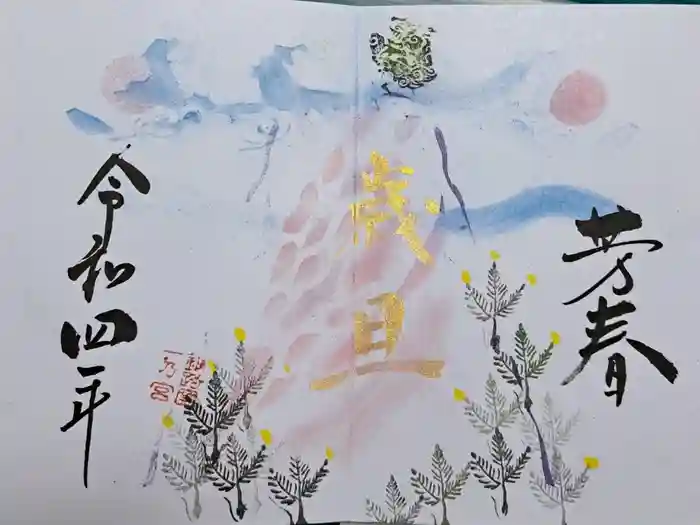 芳春
歳旦
令和四年
一乃宮